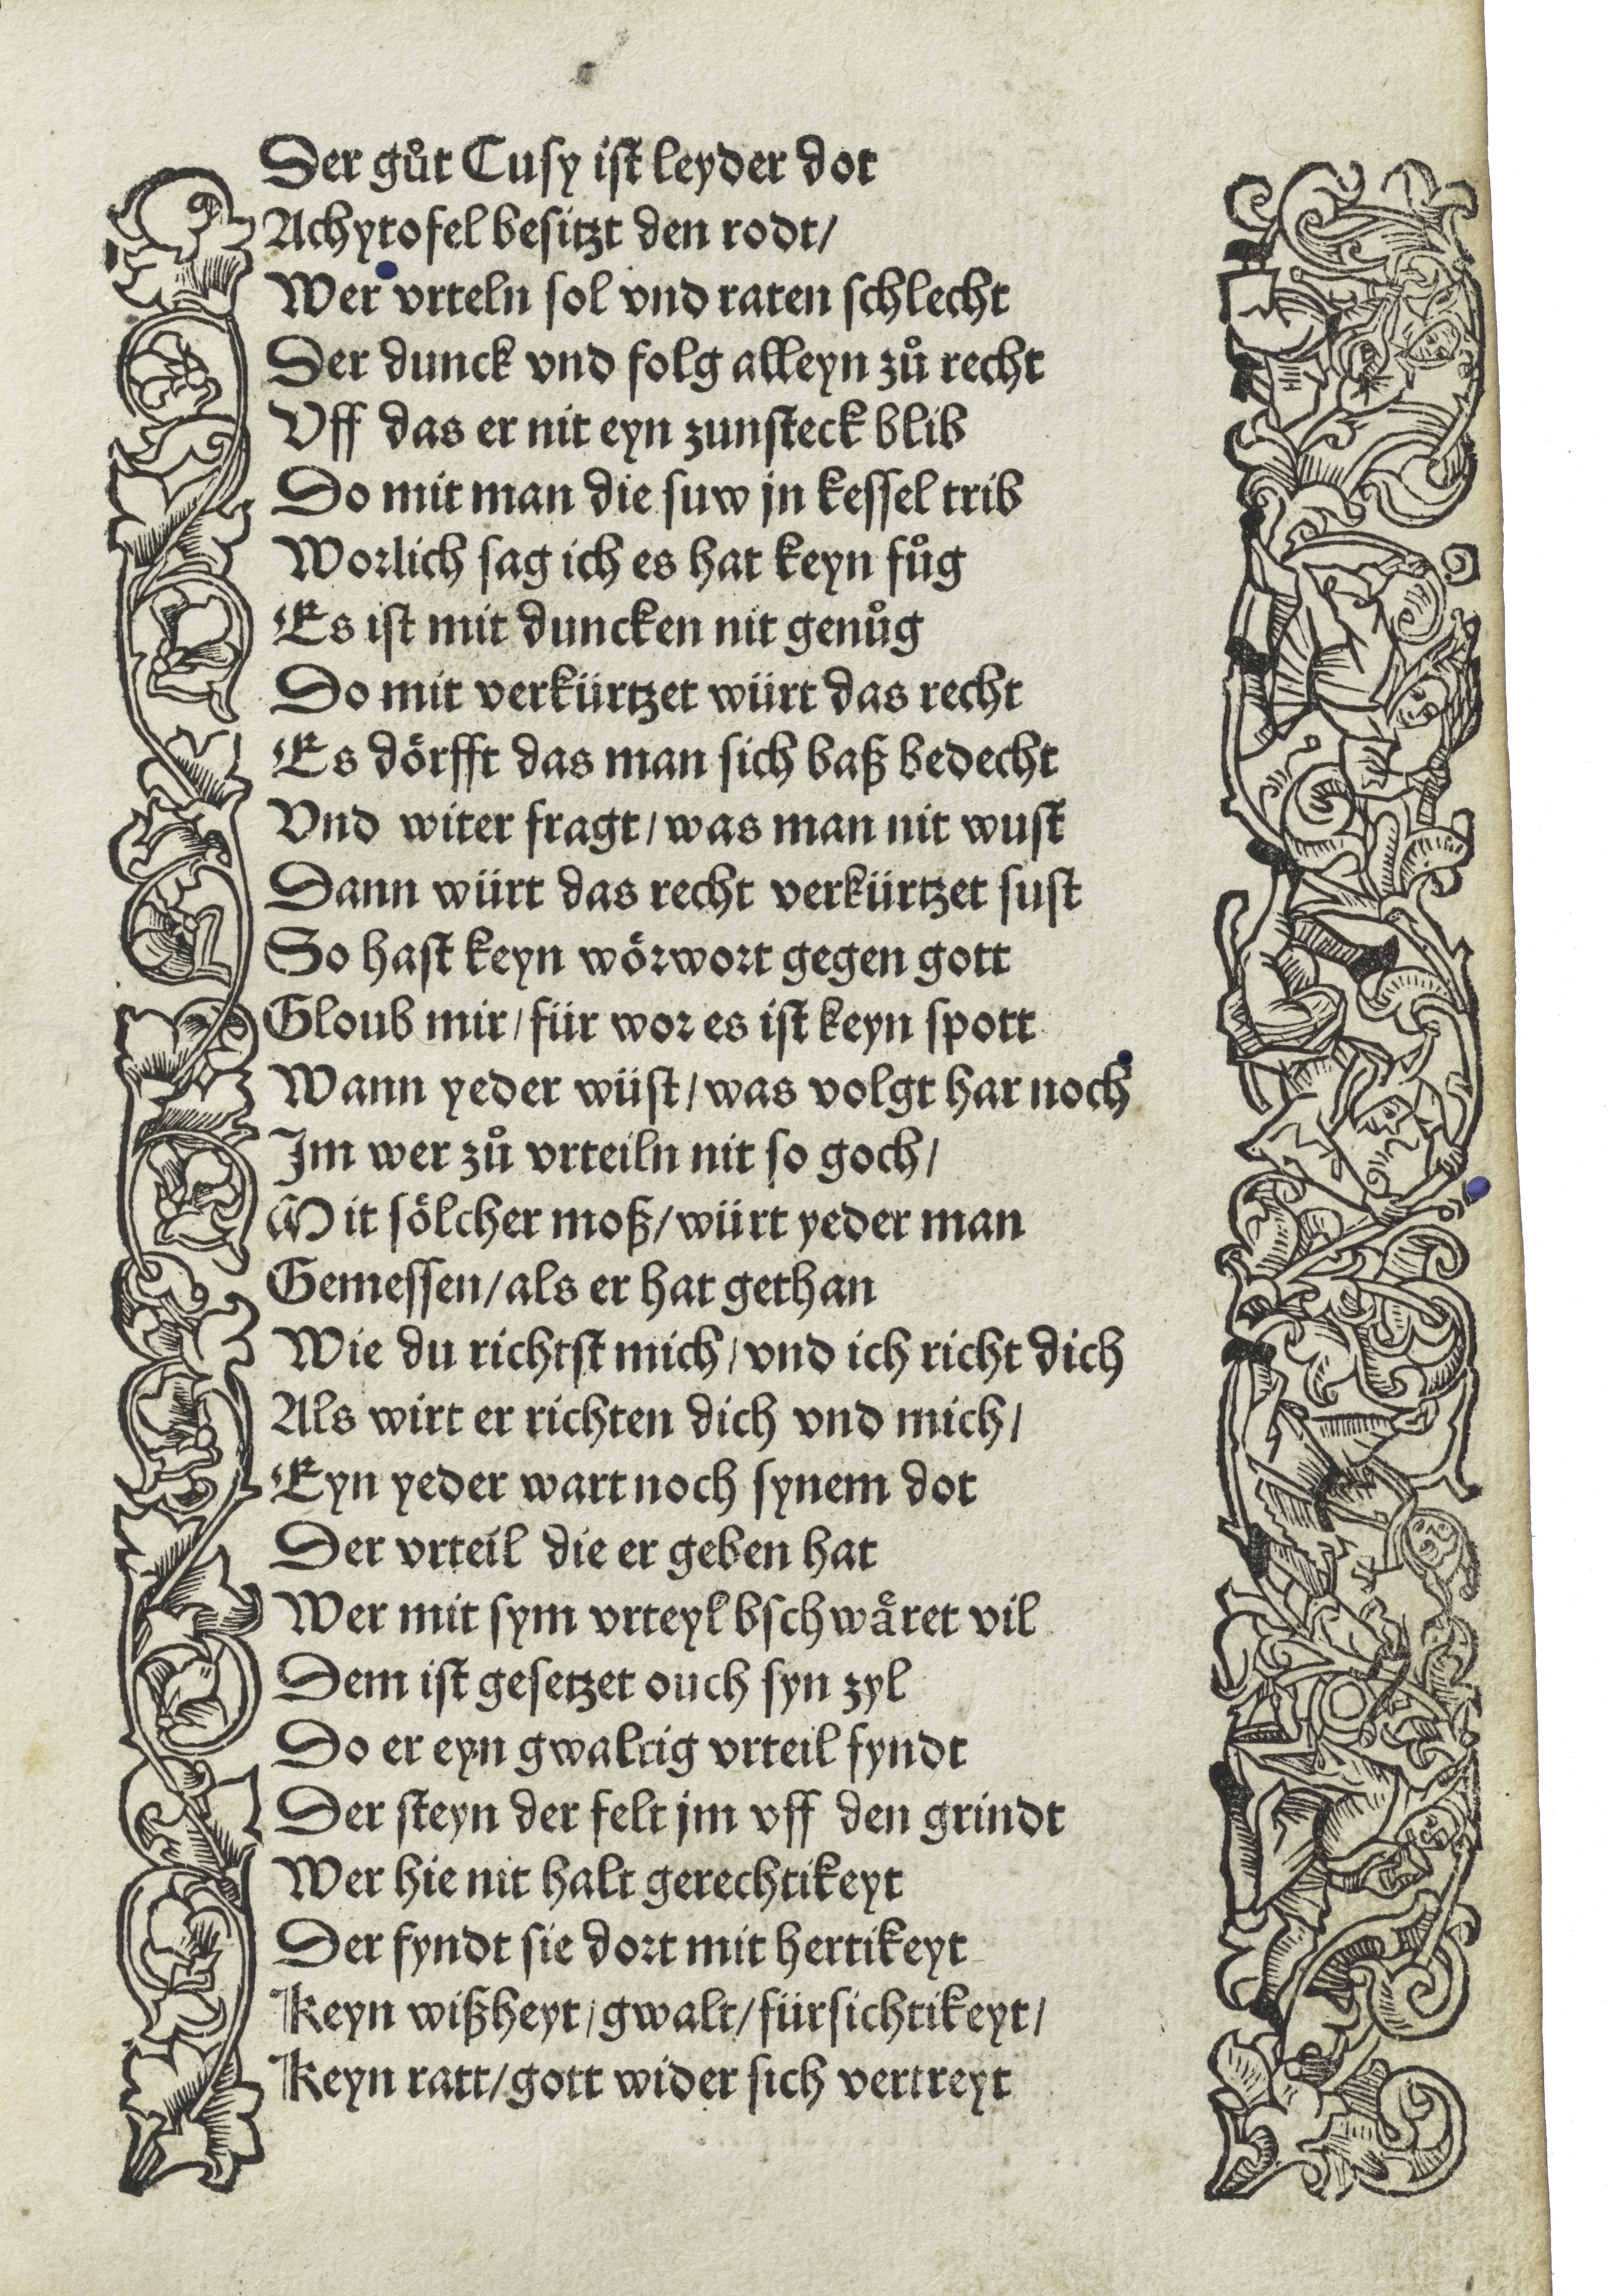 Der gůt Cusy ist leyder dot
Achytofel besitzt den rodt/
Wer vrteln sol vnd raten schlecht
Der dunck vnd folg alleyn zů recht
Vff das er nit eyn zunsteck blib
Do mit man die suw jn kessel trib
Worlich sag ich es hat keyn fůg
Es ist mit duncken nit genůg
Do mit verkürtzet würt das recht
Es dörfft das man sich baß bedecht
Vnd witer fragt/was man nit wust
Dann würt das recht verkürtzet sust
So hast keyn wörwort gegen gott
Gloub mir/für wor es ist keyn spott
Wann yeder wüst/was volgt har noch
Im wer zů vrteiln nit so goch/
Mit sölcher moß/würt yeder man
Gemessen/als er hat gethan
Wie du richtst mich/vnd ich richt dich
Als wirt er richten dich vnd mich/
Eyn yeder wart noch synem dot
Der vrteil die er geben hat
Wer mit sym vrteyl bschwäret vil
Dem ist gesetzet ouch syn zyl
Do er eyn gwaltig vrteil fyndt
Der steyn der felt jm vff den grindt
Wer hie nit halt gerechtikeyt
Der fyndt sie dort mit hertikeyt
Keyn wißheyt/gwalt/fürsichtikeyt/
Keyn ratt/gott wider sich vertreyt